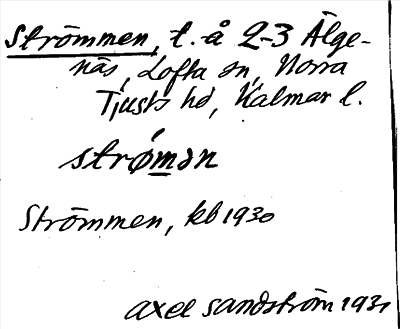 Strömmen, t. å 2-3 Älge-
näs, Lofta sn, Norra
Tjusts hd, Kalmar l.
strø̀mən
Strömmen, kb 1930
Axel Sandström 1931